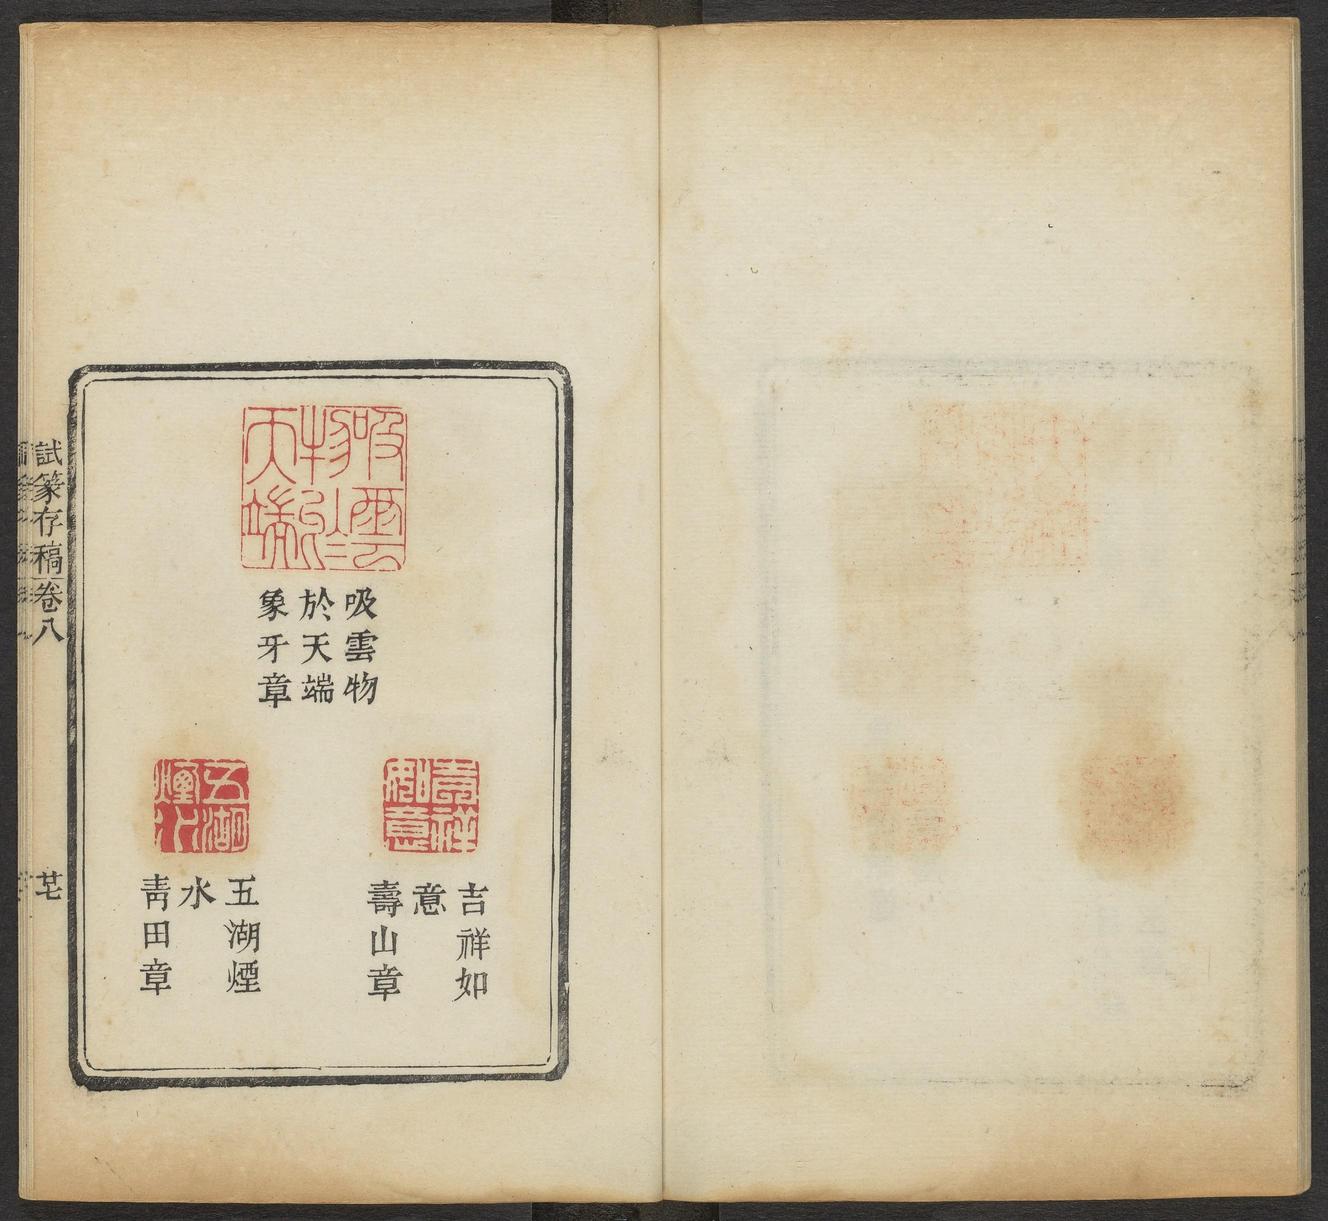 吸雲物於天端
吸雲物
於天端
象牙章
吉祥如意
吉祥如
意
壽山章
五湖煙水
五湖煙
水
靑田章
試篆存稿卷八